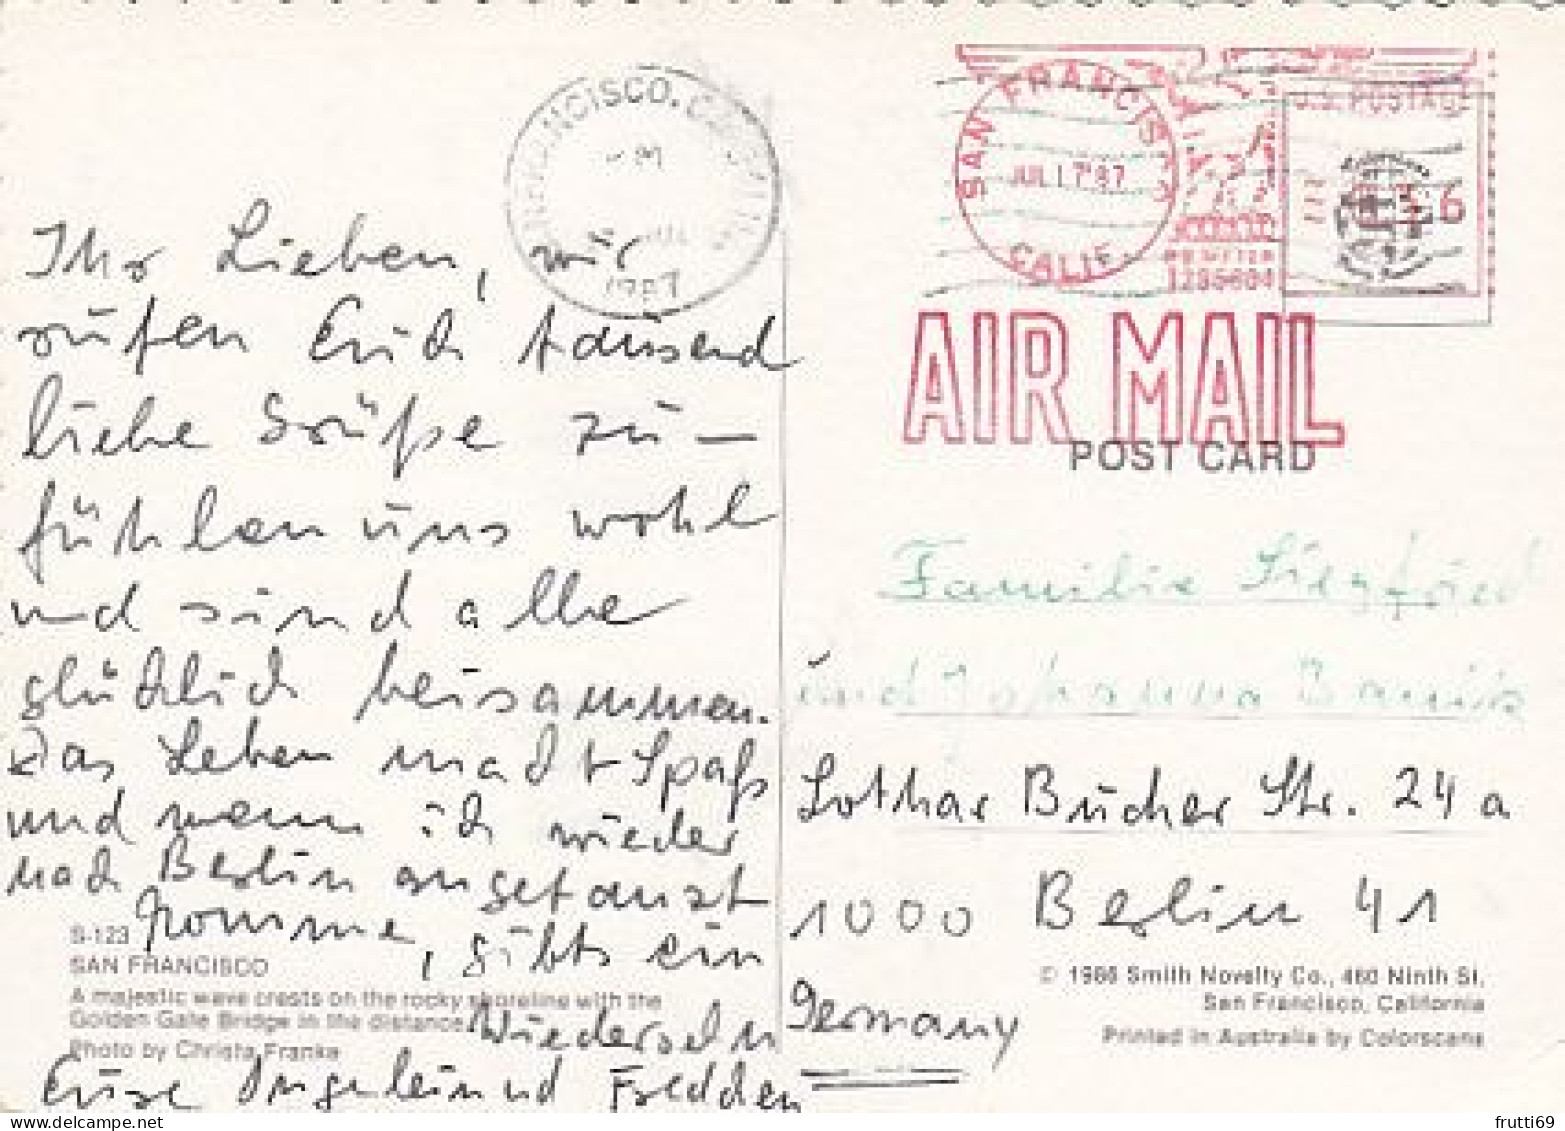 SAN FRANCISCO
CALIF.
JUL 17 '87
U.S. POSTAGE
1987
AIR MAIL
POST CARD
Ihr Lieben, wir
rufen Euch tausend
liebe Grüße zu –
fühlen uns wohl
und sind alle
glücklich beisammen.
Das Leben macht Spaß
und wenn ich wieder
nach Berlin angetanzt
komme, gibts ein
Wiedersehn
Eure
und
Familie Siegfried
und Johanna
Lothar Bucher Str. 24 a
1000 Berlin 41
Germany
S-123
SAN FRANCISCO
A majestic wave crests on the rocky shoreline with the
Golden Gate Bridge in the distance.
Photo by Christa Franke
© 1986 Smith Novelty Co., 460 Ninth St.
San Francisco, California
Printed in Australia by Colorscans
frutti69